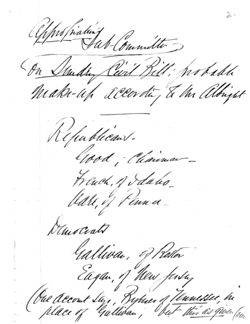 2.
Appropriating
Sub-Committee
On Sundry Civil Bill: probable
make-up according to Mr Albright
Republicans-
Good, Chairman-
French, of Idaho-
Vare, of Penna-
Democrats
Gallivan, of Boston
Eagan, of New Jersey
(One account says, Byrnes of Tennessee, in
place of Gallivan, but this as given